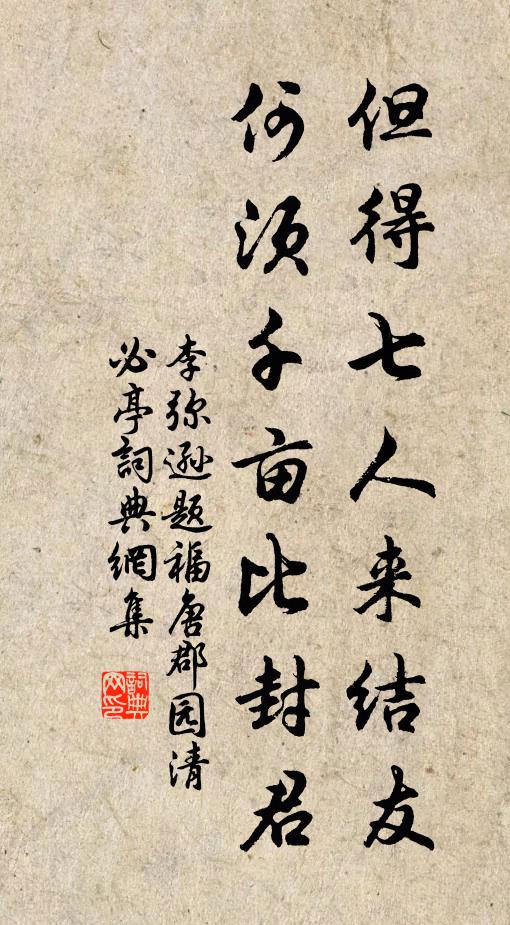 但得七人来结友
何须千亩比封君
李弥逊题福唐郡园清
必亭詞典網集
詞典
网印